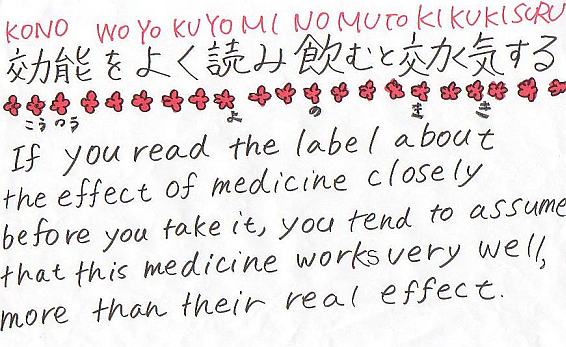 KONO WO YO KU YO MI NO MU TO KI KU KI SURU
効能をよく読み飲むと効く気する
こうのう よ の き き
If you read the label about
the effect of medicine closely
before you take it, you tend to assume
that this medicine works very well,
more than their real effect.